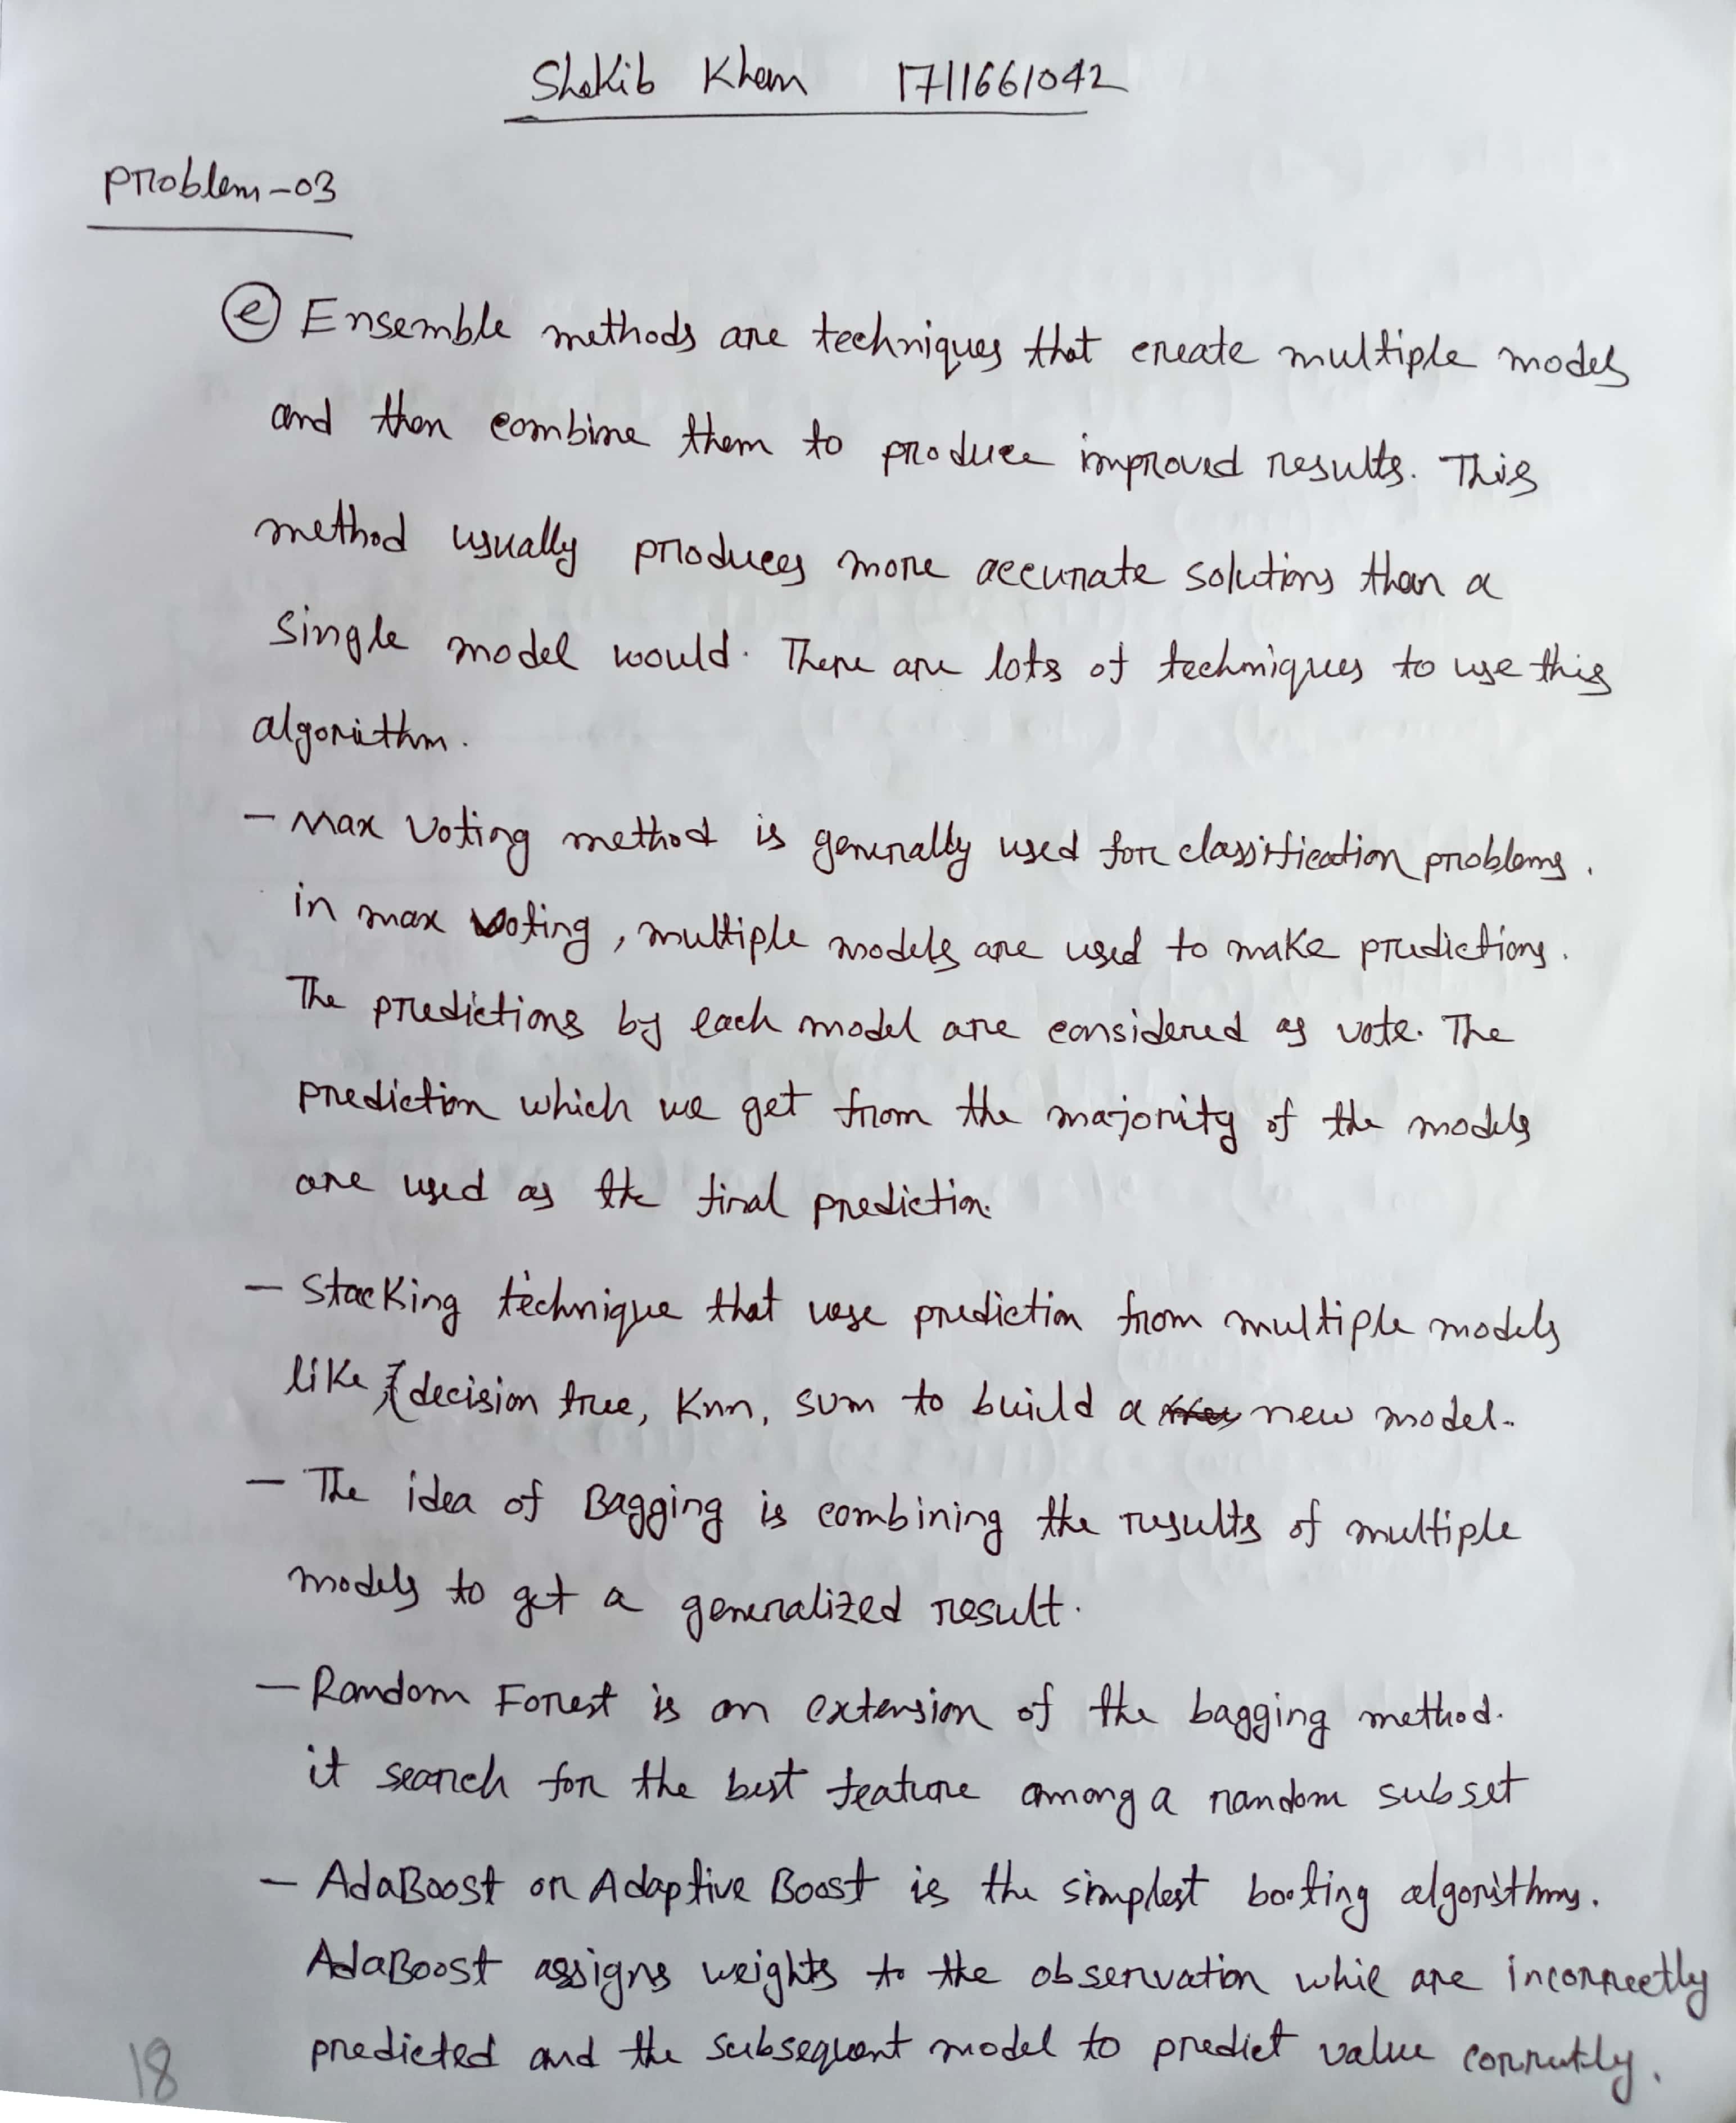 Shakib Khan 1711661042
Problem-03
(e) Ensemble methods are techniques that create multiple models
and then combine them to produce improved results. This
method usually produces more accurate solutions than a
single model would. There are lots of techniques to use this
algorithm.
- Max Voting method is generally used for classification problems.
in max voting, multiple models are used to make predictions.
The predictions by each model are considered as vote. The
prediction which we get from the majority of the models
are used as the final prediction.
- Stacking technique that use prediction from multiple models
like decision tree, Knn, svm to build a new model.
- The idea of Bagging is combining the results of multiple
models to get a generalized result.
- Random Forest is an extension of the bagging method.
it search for the best feature among a random subset
- AdaBoost or Adaptive Boost is the simplest booting algorithms.
AdaBoost assigns weights to the observation whic are incorrectly
predicted and the subsequent model to predict value correctly.
18